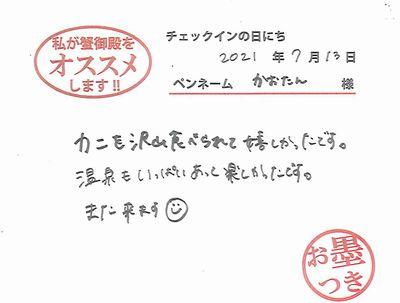 私が蟹御殿を
オススメ
します!!
チェックインの日にち
2021 年 7 月 13 日
ペンネーム かおたん 様
カニを沢山食べられて嬉しかったです。
温泉もいっぱいあって楽しかったです。
また来ます
お墨
つき